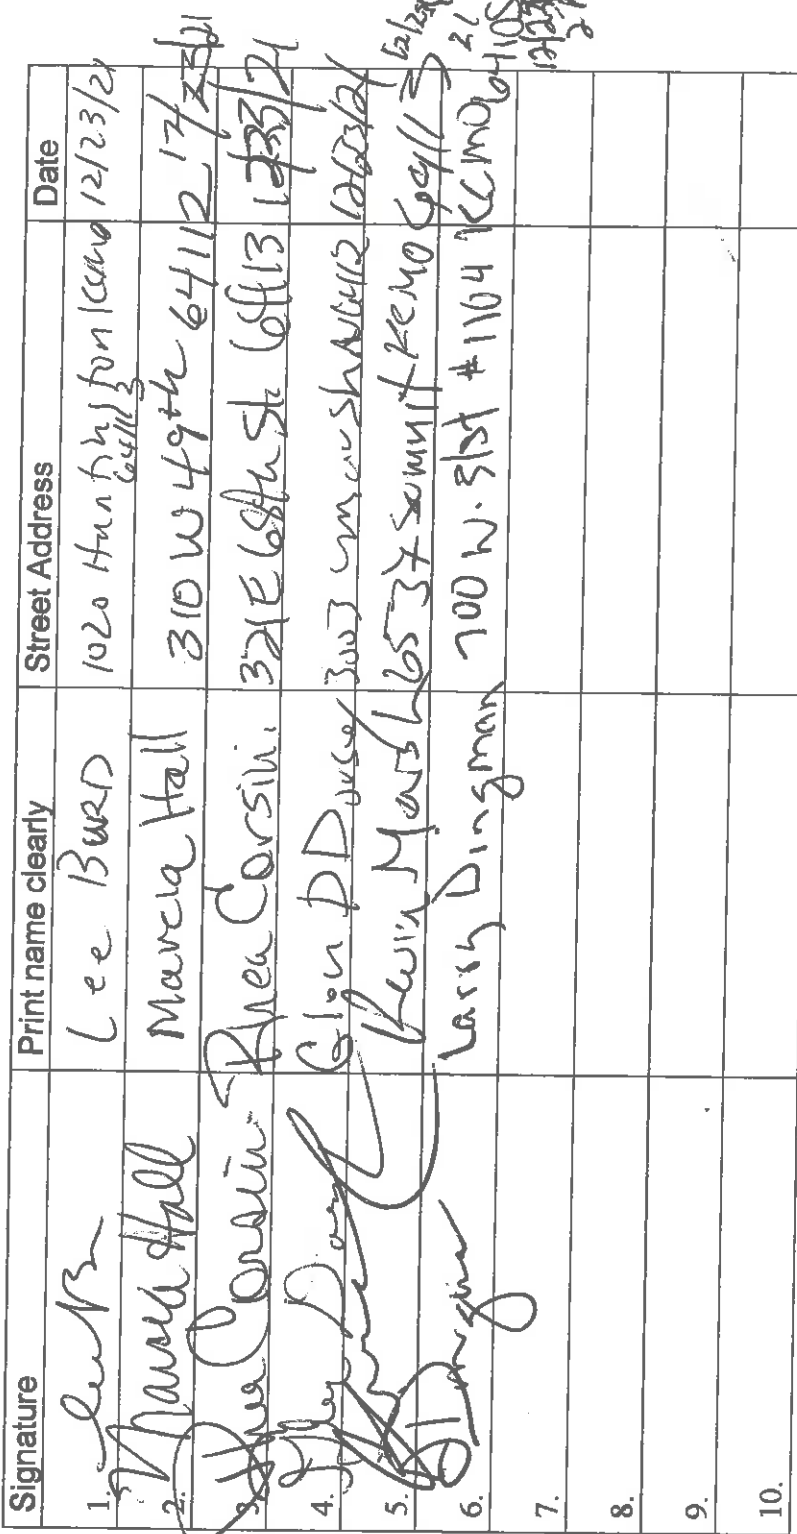 Signature Print name clearly Street Address Date
1. Lee BURD 1020 Huntington KCMO 64113 12/23/21
2. Marcia Hall Marcia Hall 310 W 49th 64112 12/23/21
3. Rhea Corsini Rhea Corsini 321 E 68th St 64113 12/23/21
4. Glen D 3003 64112 12/23/21
5. Kevin Marsh 6537 Summit KCMO 64113 12/23/21
6. Dingman Larry Dingman 700 W. 31st #1104 KCMO 64108 12/23/21
7.
8.
9.
10.